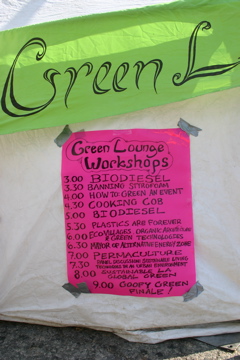 Green L
Green Lounge
Workshops
3.00 BIODIESEL
3.30 BANNING STYROFOAM
4.00 HOW TO GREEN AN EVENT
4.30 COOKING COB
5.00 BIODIESEL
5.30 PLASTICS ARE FOREVER
6.00 ECOVILLAGES, ORGANIC AGRICULTURE
& GREEN TECHNOLOGIES
6.30 MAYOR OF ALTERNATIVE ENERGY ZONE
7.00 PERMACULTURE
7.30 PANEL DISCUSSION SUSTAINABLE LIVING
TECHNIQUES IN AN URBAN ENVIRONMENT
8.00 SUSTAINABLE LA
GLOBAL GREEN
9.00 GOOFY GREEN
FINALE!